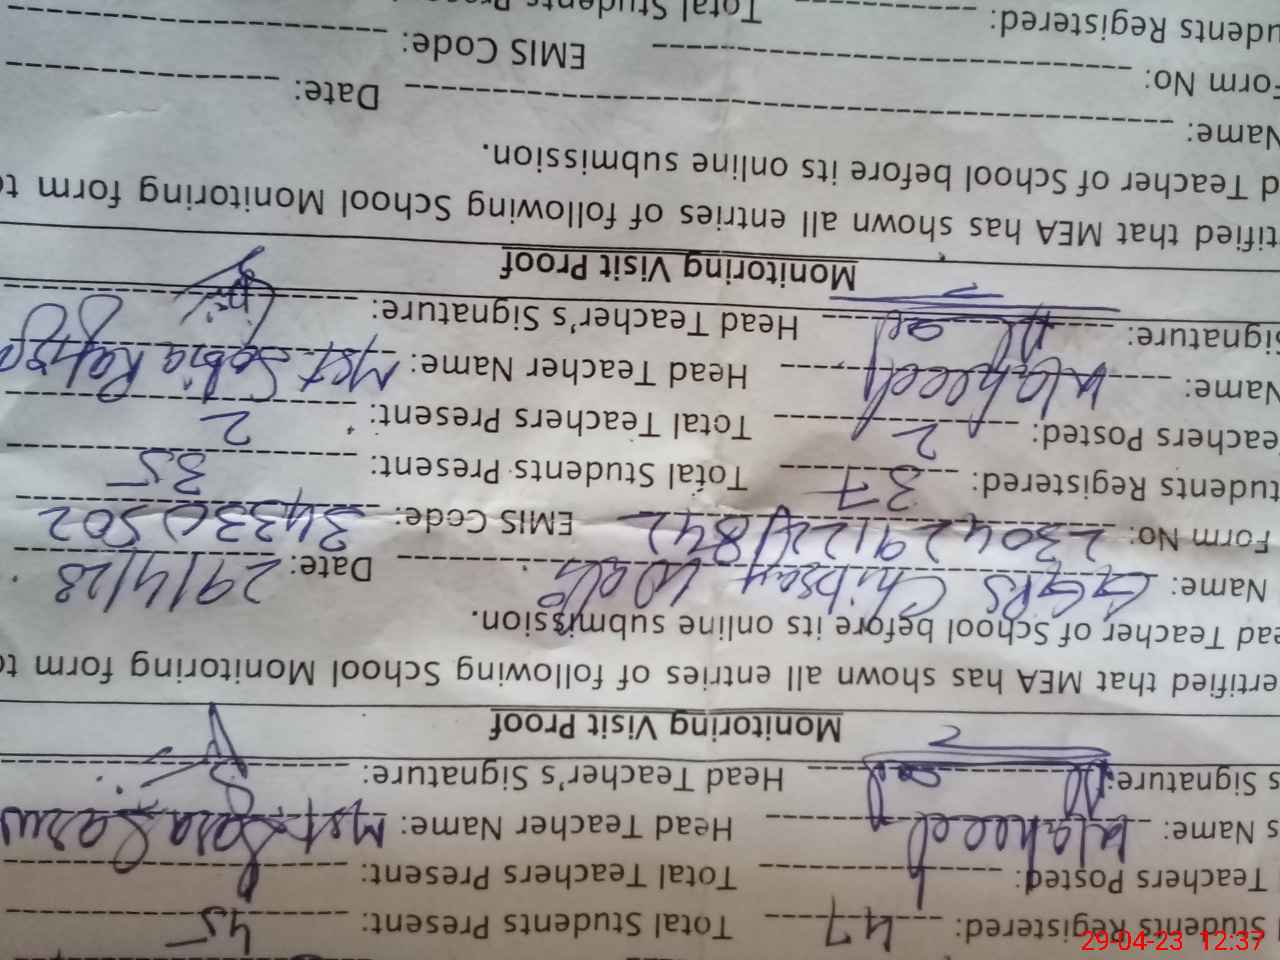 Students Registered: 47 Total Students Present: 45
Teachers Posted: 1 Total Teachers Present: 1
s Name: Waheed Head Teacher Name: Mst. Sara Sarw
s Signature: Head Teacher's Signature:
Monitoring Visit Proof
ertified that MEA has shown all entries of following School Monitoring form to
ead Teacher of School before its online submission.
Name: GGPS Chibsay Wali Date: 29/4/23
Form No: EMIS Code: 34330502
tudents Registered: 37 Total Students Present: 35
eachers Posted: 2 Total Teachers Present: 2
Name: Waheed Head Teacher Name: Mst. Sobia
Signature: Head Teacher's Signature:
Monitoring Visit Proof
tified that MEA has shown all entries of following School Monitoring form to
d Teacher of School before its online submission.
Name: Date:
Form No: EMIS Code:
udents Registered: Total Students Pres
29-04-23 12:37